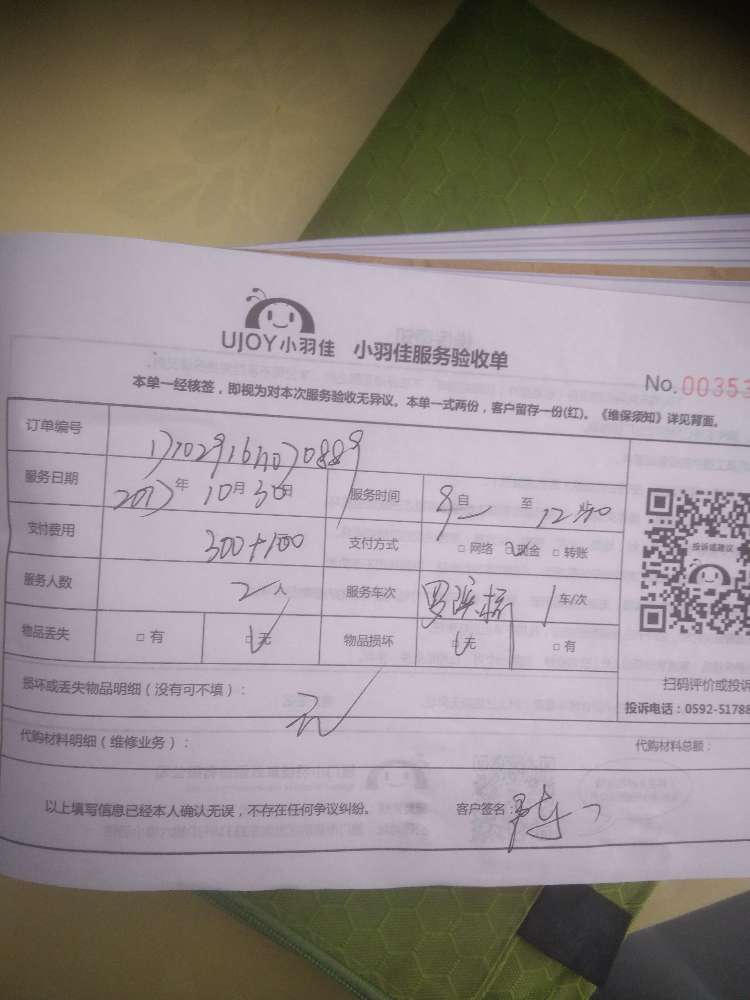 UJOY小羽佳 小羽佳服务验收单
No.00353
本单一经核签，即视为对本次服务验收无异议。本单一式两份，客户留存一份(红)。《维保须知》详见背面。
订单编号
服务日期 2017年10月30日 服务时间 9自 至12
支付费用 300+100 支付方式 □网络 □现金 □转账
服务人数 2人 服务车次 1车/次
物品丢失 □有 □无 物品损坏 □无 □有
投诉或建议
扫码评价或投诉
投诉电话：0592-51788
损坏或丢失物品明细（没有可不填）： 无
代购材料明细（维修业务）： 代购材料总额：
以上填写信息已经本人确认无误，不存在任何争议纠纷。 客户签名：